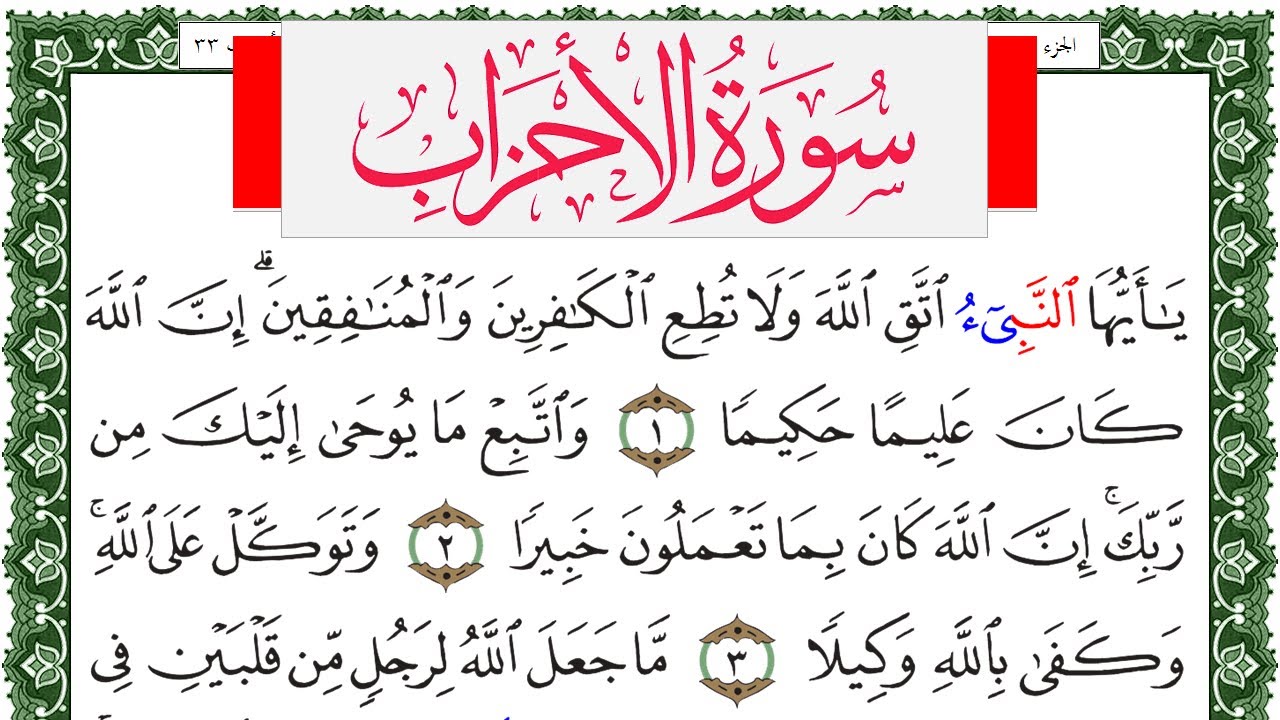 الجزء ٣٣
سُورَةُ الأَحْزَابِ
يَـٰٓأَيُّهَا ٱلنَّبِىٓءُ ٱتَّقِ ٱللَّهَ وَلَا تُطِعِ ٱلْكَـٰفِرِينَ وَٱلْمُنَـٰفِقِينَ ۗ إِنَّ ٱللَّهَ
كَانَ عَلِيمًا حَكِيمًا ١ وَٱتَّبِعْ مَا يُوحَىٰ إِلَيْكَ مِن
رَّبِّكَ ۚ إِنَّ ٱللَّهَ كَانَ بِمَا تَعْمَلُونَ خَبِيرًا ٢ وَتَوَكَّلْ عَلَى ٱللَّهِ ۚ
وَكَفَىٰ بِٱللَّهِ وَكِيلًا ٣ مَّا جَعَلَ ٱللَّهُ لِرَجُلٍ مِّن قَلْبَيْنِ فِى